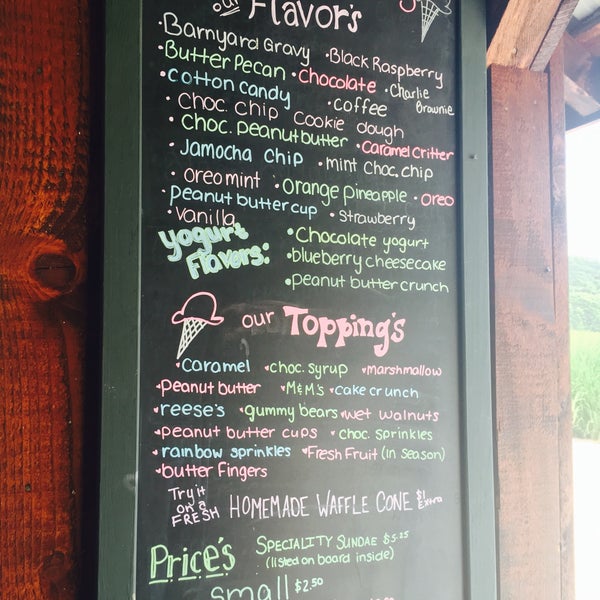 our Flavor's
• Barnyard Gravy • Black Raspberry
• Butter Pecan • Chocolate • Charlie Brownie
• cotton candy • coffee
• Choc. Chip Cookie dough
• Choc. peanut butter • Caramel Critter
• Jamocha Chip • mint Choc. chip
• oreo mint • orange pineapple • oreo
• peanut butter cup • Strawberry
• vanilla
Yogurt Flavors:
• Chocolate yogurt
• blueberry cheesecake
• peanut butter crunch
our Topping's
• caramel • choc. syrup • marshmallow
• peanut butter • M&M's • cake crunch
• reese's • gummy bears • wet walnuts
• peanut butter cups • choc. sprinkles
• rainbow sprinkles • Fresh Fruit (in season)
• butter fingers
Try it on a FRESH HOMEMADE WAFFLE CONE $1 Extra
Price's
SPECIALITY SUNDAE $5.25
(listed on board inside)
small $2.50